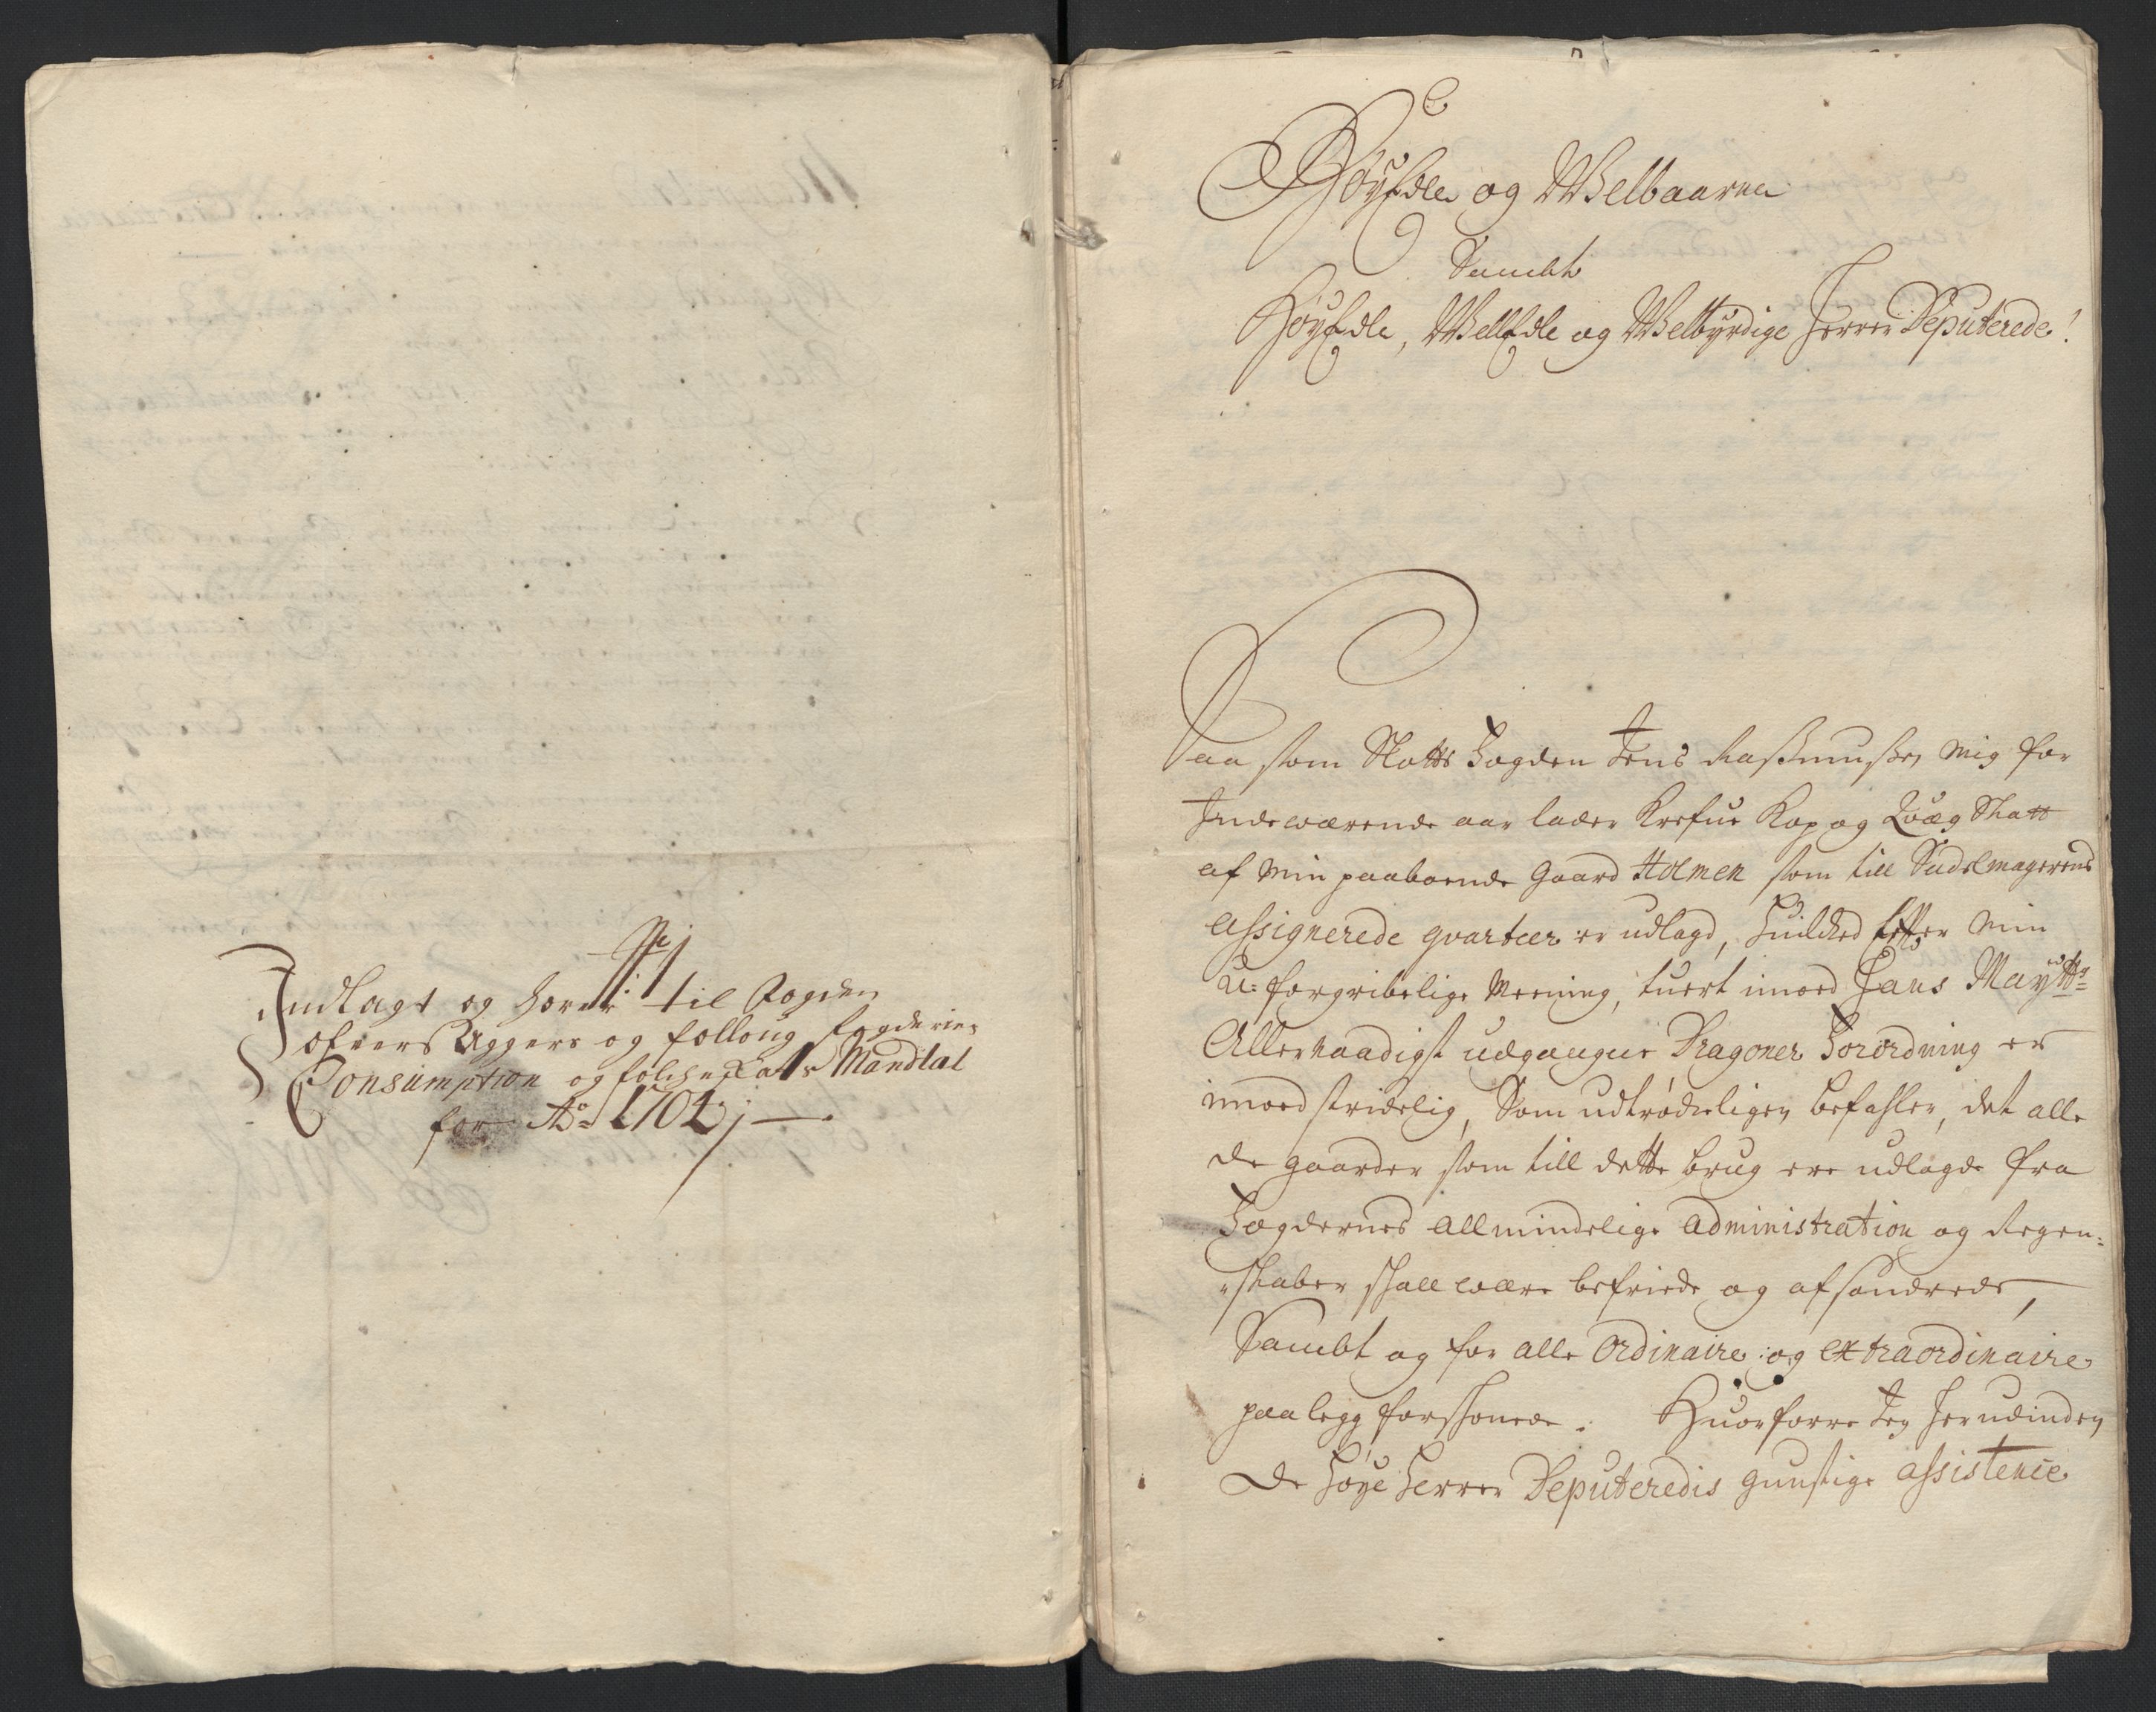 Indlagt og hører til Fogden
ofvers Aggers og follougs fogderies
Consumption og folche Skats Mandtal
for Ao 1704;
HøyEdle og Welbaarne
Sambt
HøyEdle, WellEdle og Welbyrdige Herrer Deputerede!
Saa som Slotts Fogden Jens Rassmussen mig for
Indeværende aar lader Krefue Kop og Qvæg Skatt
af min paaboende gaard Holmen som till Sadelmagerens
assignerede qvarteer er udlagd, huilched Effter min
U-forgribelige Meening, tuert imoed Hans Maytts
Allernaadigst udgangne Dragoner Forordning er
imoed stridelig, Som udtrøckeligen befahler, det alle
de gaarder som till dette brug ere udlagde fra
Fogdernes allmindelige administration og Regen-
skaber skall være befriede og afsondrede,
Sambt og for alle ordinaire og extraordinaire
paalegg forskonede. Huorforre Jeg herudinden
De høye Herrer Deputeredis gunstige assistence